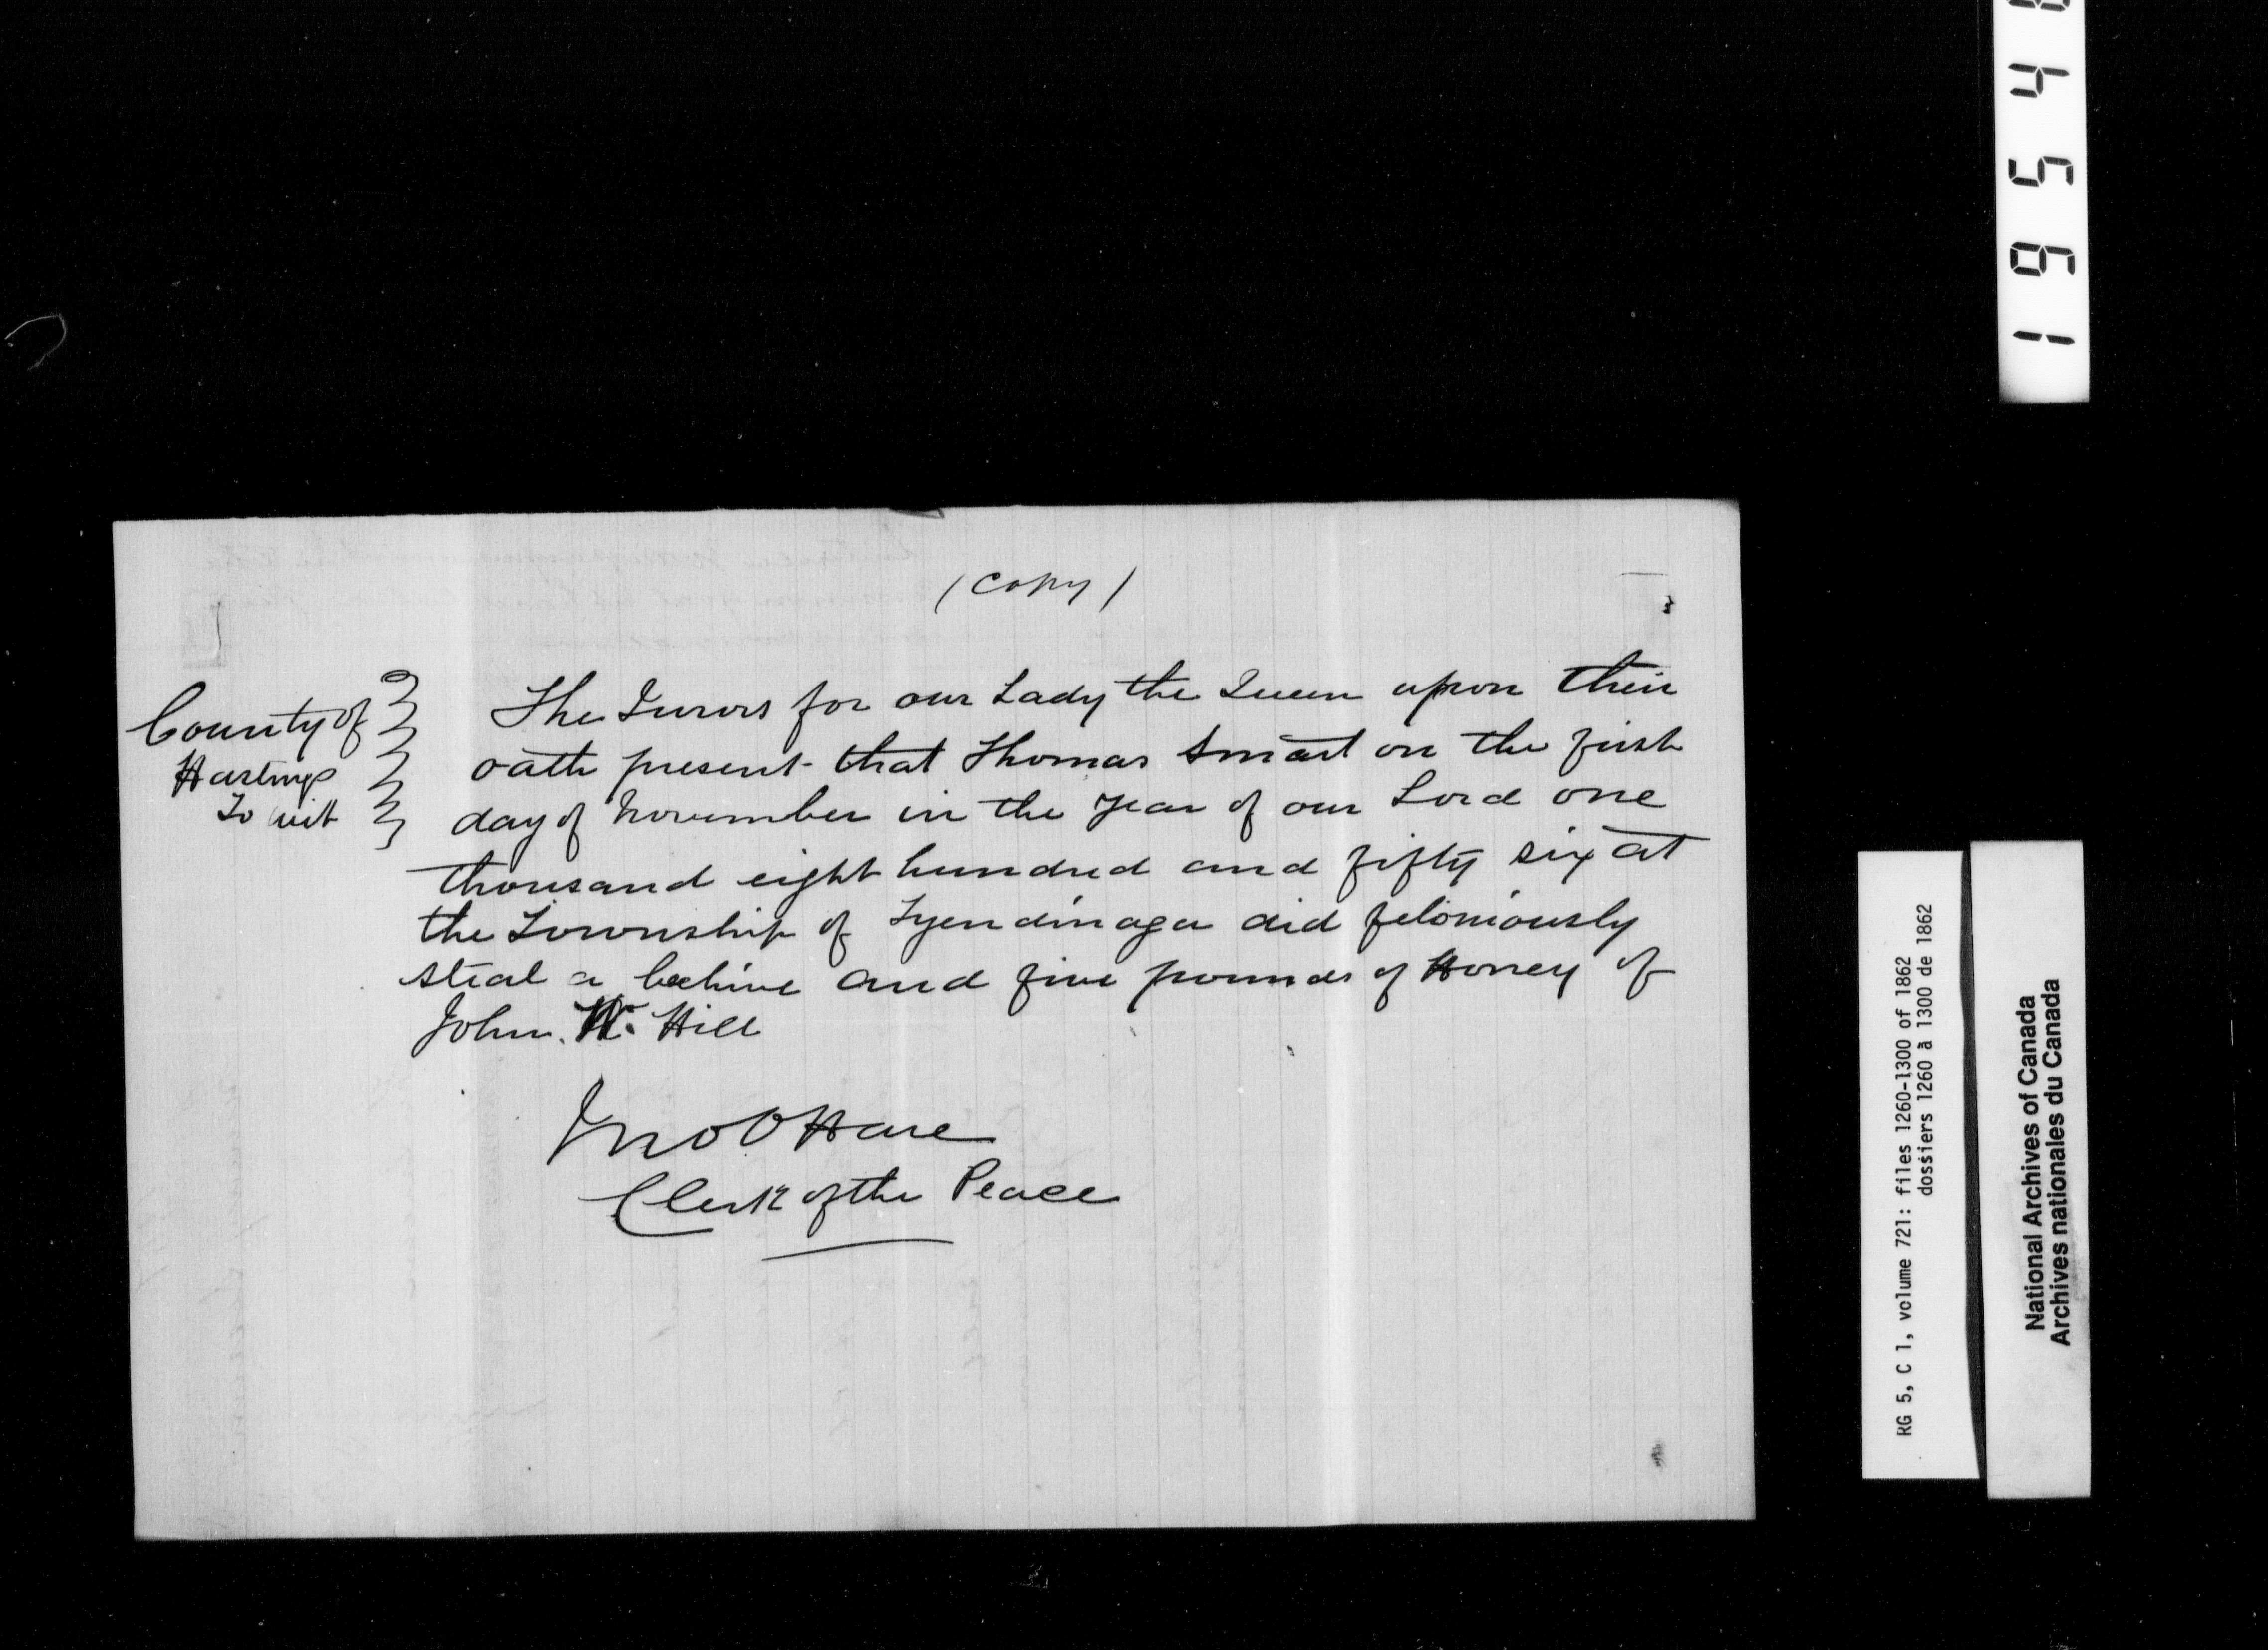 (Copy)
County of
Hastings
To wit
The Jurors for our Lady the Queen upon their
oath present that Thomas Smart on the first
day of November in the year of our Lord one
thousand eight hundred and fifty six at
the Township of Tyendinaga did feloniously
steal a beehive and five pounds of Honey of
John. W. Hill
Jno O Hare
Clerk of the Peace
RG 5, C 1, volume 721: files 1260-1300 of 1862
dossiers 1260 à 1300 de 1862
National Archives of Canada
Archives nationales du Canada